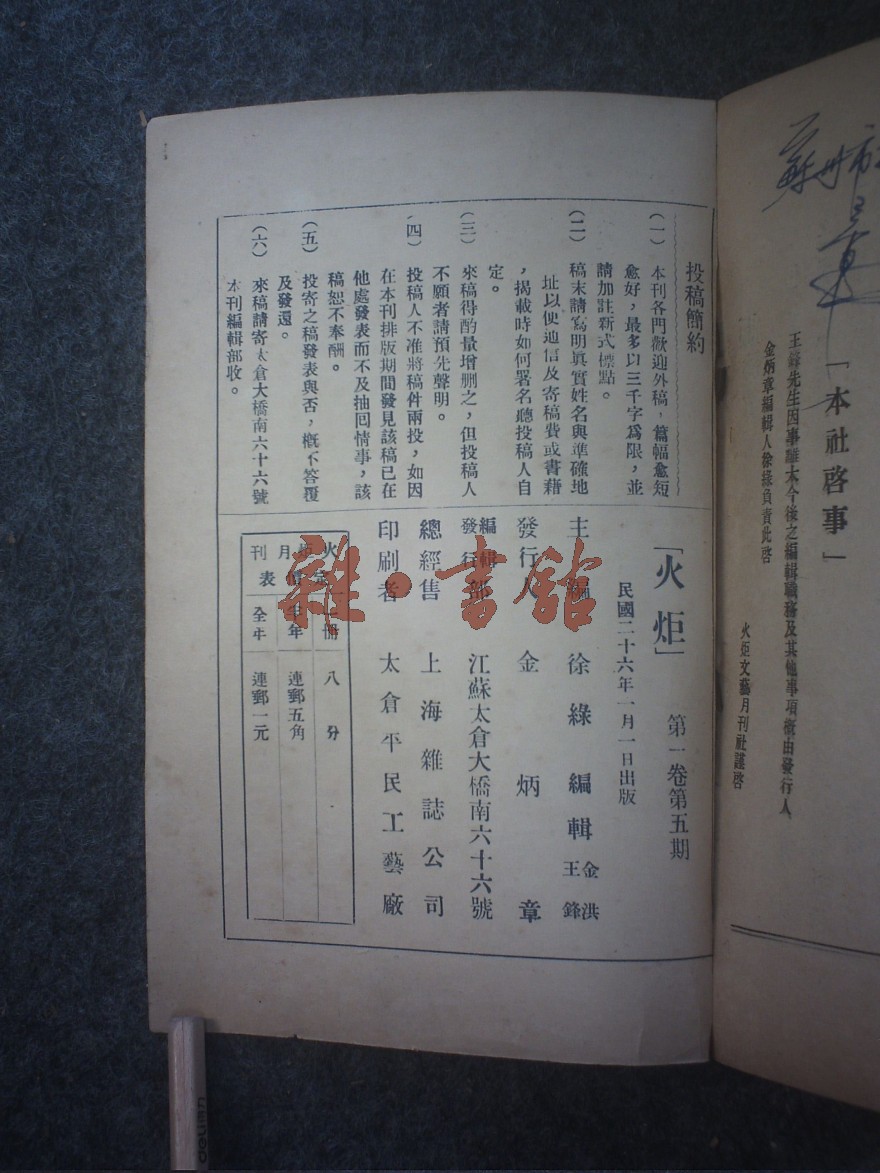 「本社啓事」
王鋒先生因事離太今後之編輯職務及其他事項概由發行人
金炳章編輯人徐綠負責此啓
火炬文藝月刊社謹啓
投稿簡約
（一）本刊各門歡迎外稿，篇幅愈短
愈好，最多以三千字爲限，並
請加註新式標點。
（二）稿末請寫明眞實姓名與準確地
址以便通信及寄稿費或書藉
，揭載時如何署名聽投稿人自
定。
（三）來稿得酌量增删之，但投稿人
不願者請預先聲明。
（四）投稿人不准將稿件兩投，如因
在本刊排版期間發見該稿已在
他處發表而不及抽回情事，該
稿恕不奉酬。
（五）投寄之稿發表與否，概不答覆
及發還。
（六）來稿請寄太倉大橋南六十六號
本刊編輯部收。
「火炬」 第一卷第五期
民國二十六年一月一日出版
主編 徐綠 編輯 金洪 王鋒
發行人 金炳章
編輯發行部 江蘇太倉大橋南六十六號
總經售 上海雜誌公司
印刷者 太倉平民工藝廠
火炬月刊
定價表
一册 八分
半年 連郵五角
全年 連郵一元
雜·書館
deli